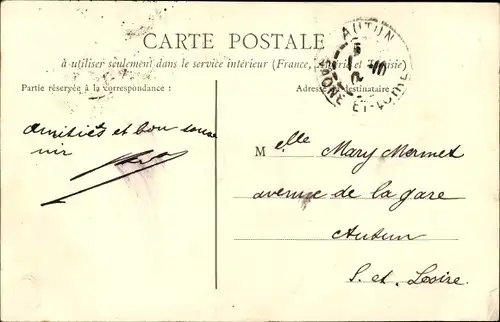 CARTE POSTALE
à utiliser seulement dans le service intérieur (France, Algérie et Tunisie)
Partie réservée à la correspondance :
Adresse du destinataire
AUTUN
SAONE-ET-LOIRE
amitiés et bon souve
nir
Melle Mary Mermet
avenue de la gare
Autun
S. et. Loire.